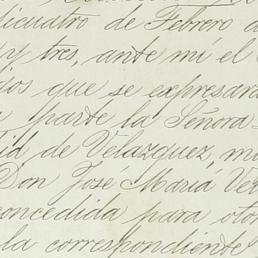 ticuatro de Febrero d
y tres, ante mi el
que se expresará
parte la Señora
id de Velazquez, m
Don José María Ve
concedida para oto
la correspondiente